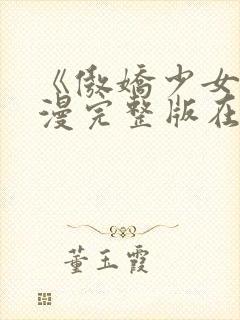 《傲娇少女
漫完整版在
董玉霞